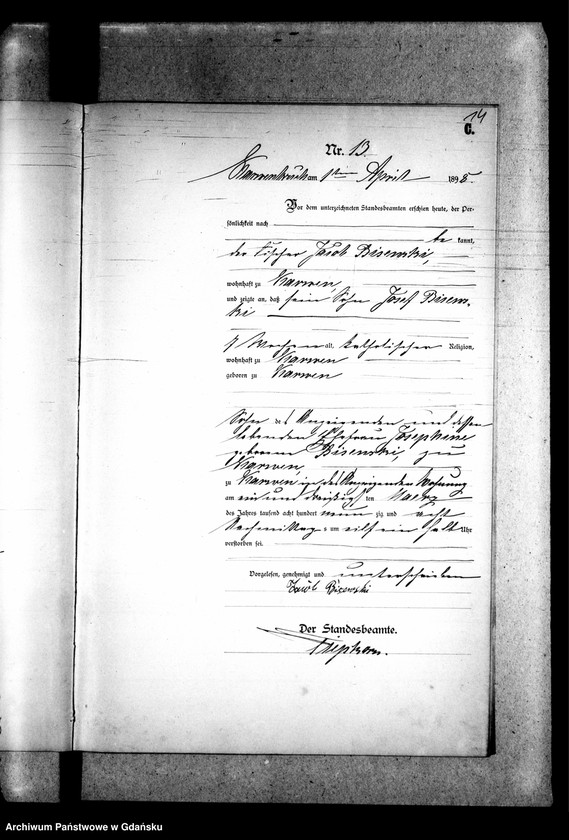 14
C.
Nr. 13.
Karwenbruch am 1ten April 1898.
Vor dem unterzeichneten Standesbeamten erschien heute, der Per-
sönlichkeit nach
be kannt,
der Fischer Jacob Bisewski,
wohnhaft zu Karwen,
und zeigte an, daß sein Sohn Josef Bisews-
ki
Wochen alt, katholischer Religion,
wohnhaft zu Karwen
geboren zu Karwen
Sohn des Anzeigenden und dessen
lebenden Ehefrau Josephine
geborenen Bisewski, zu
Karwen,
zu Karwen in des Anzeigenden Wohnung
am ein und dreißigsten März
des Jahres tausend acht hundert neun zig und acht
Nachmittags um elf ein halb Uhr
verstorben sei.
Vorgelesen, genehmigt und unterschrieben
Jacob Bizewski
Der Standesbeamte.